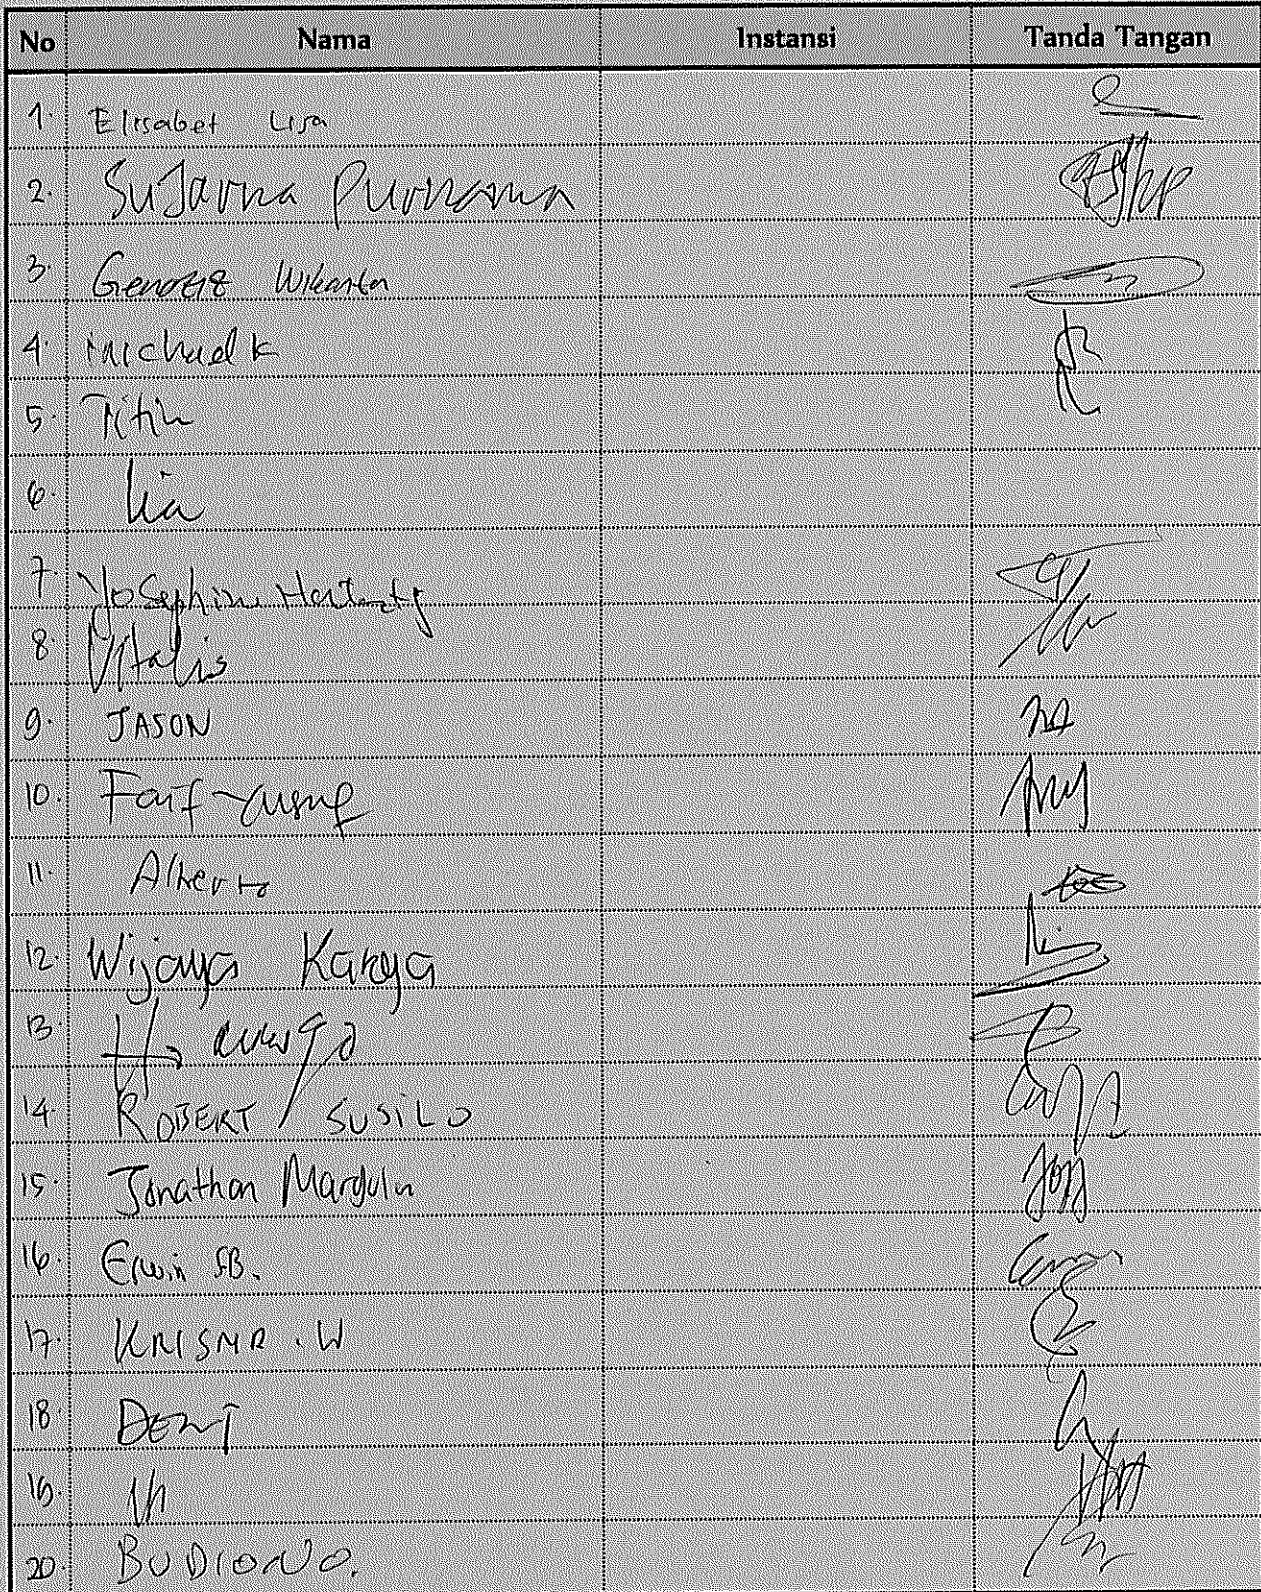 No Nama Instansi Tanda Tangan
1. Elisabet Lisa
2. SuJarna Purnama
3. George Wikanta
4. Michael K
5. Titin
6. Lia
7. Yosephin
8. Vitalis
9. JASON
10. Faif Yusuf
11. Alberto
12. Wijaya Karya
13.
14. ROBERT SUSILO
15. Jonathan
16. Erwin SB.
17. KRISMA . W
18. DEWI
19.
20. BUDIONO.